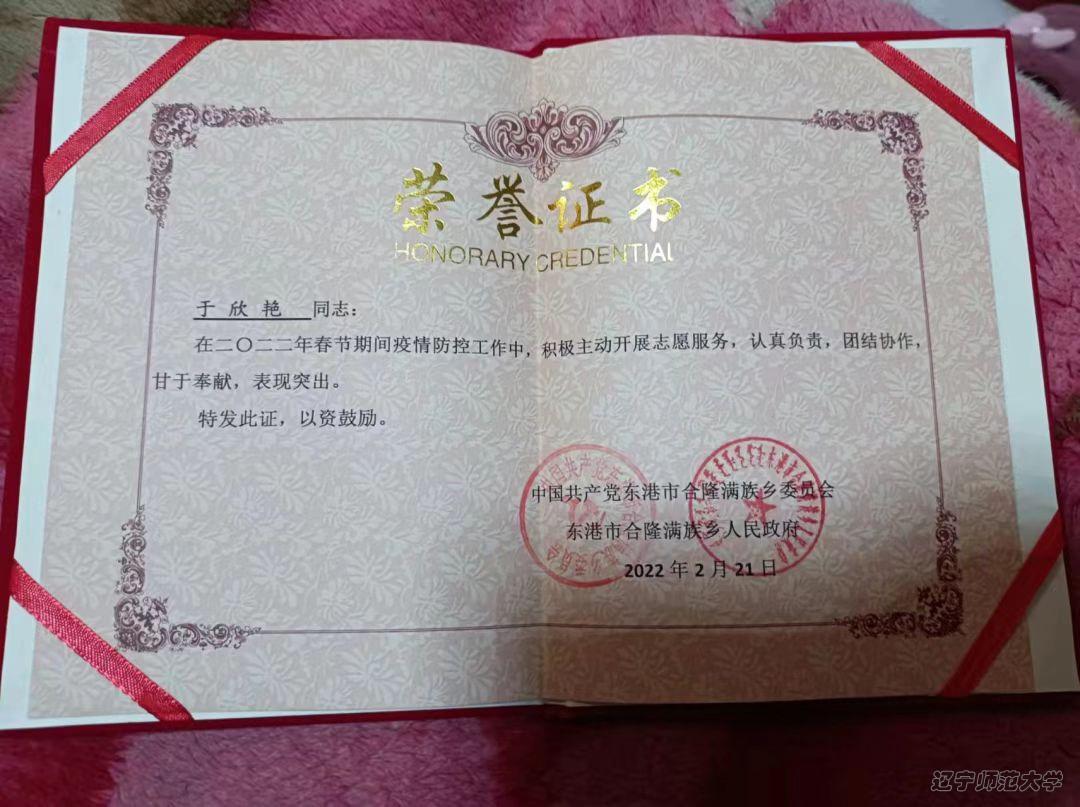 荣誉证书
HONORARY CREDENTIAL
于欣艳 同志：
在二〇二二年春节期间疫情防控工作中，积极主动开展志愿服务，认真负责，团结协作，
甘于奉献，表现突出。
特发此证，以资鼓励。
中国共产党东港市合隆满族乡委员会
东港市合隆满族乡人民政府
2022年2月21日
辽宁师范大学